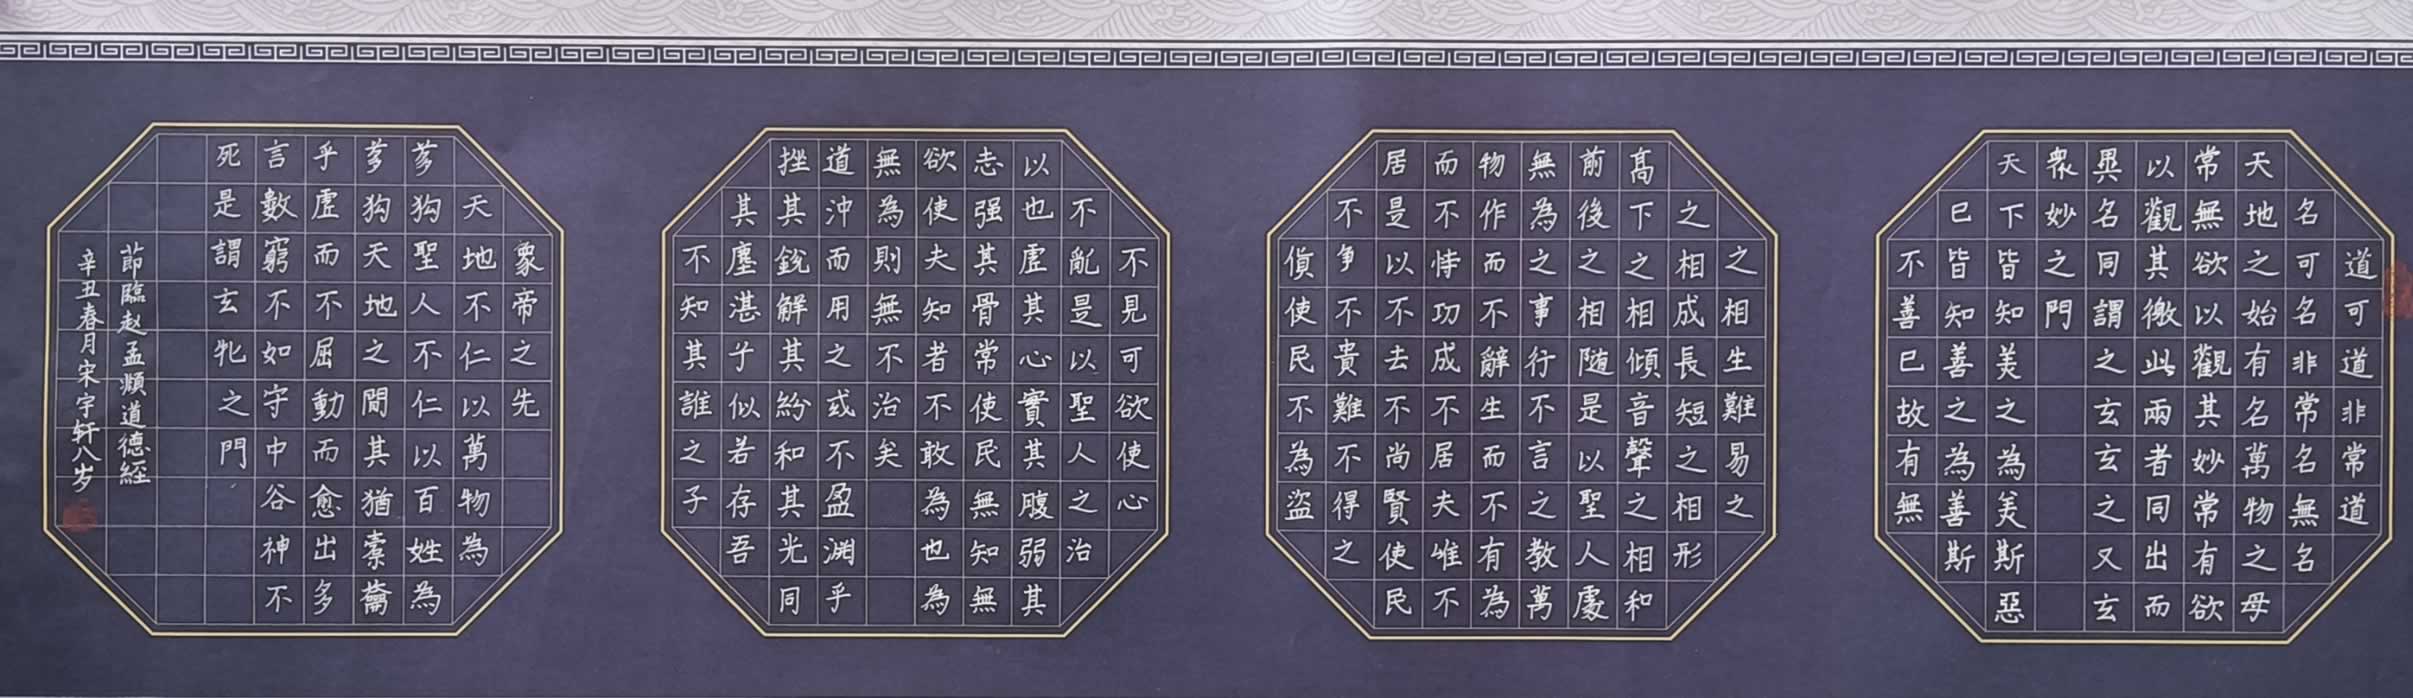 道可道非常道
名可名非常名無名
天地之始有名萬物之母
常無欲以觀其妙常有欲
以觀其徼此兩者同出而
異名同謂之玄玄之又玄
衆妙之門
天下皆知美之為美斯惡
已皆知善之為善斯
不善已故有無
之相生難易之
之相成長短之相形
髙下之相傾音聲之相和
前後之相随是以聖人處
無為之事行不言之教萬
物作而不辭生而不有為
而不恃功成不居夫唯不
居是以不去不尚賢使民
不争不貴難不得之
貨使民不為盜
不見可欲使心
不亂是以聖人之治
以也虛其心實其腹弱其
志强其骨常使民無知無
欲使夫知者不敢為也為
無為則無不治矣
道沖而用之或不盈渊乎
挫其銳解其紛和其光同
其塵湛子似若存吾
不知其誰之子
象帝之先
天地不仁以萬物為
芻狗聖人不仁以百姓為
芻狗天地之間其猶橐籥
乎虛而不屈動而愈出多
言數窮不如守中谷神不
死是謂玄牝之門
節臨赵孟頫道德經
辛丑春月宋宇轩八岁